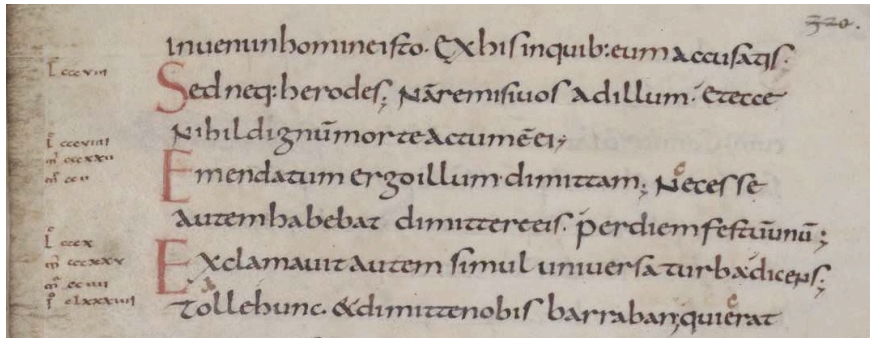 320.
Inueninhomineisto. Exhisinquib:eum accusatis.
L cccviii
Sedneq:herodes; Nāremisiuos adillum. Etecce
Nihildignūmorteactumēei;
L cccviiii
m̄ cccxxii
Emendatum ergoillum dimittam; Necesse
autemhabebat dimittereeis. perdiemfestūunū;
L cccx
m̄ cccxxv
Exclamauit autem simul uniuersaturbadicens;
Tollehunc. &dimittenobis barraban;quierat